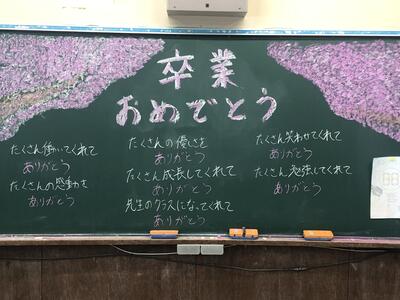 卒業
おめでとう
たくさん働いてくれて
ありがとう
たくさんの感動を
ありがとう
たくさんの優しさを
ありがとう
たくさん成長してくれて
ありがとう
先生のクラスになってくれて
ありがとう
たくさん笑わせてくれて
ありがとう
たくさん勉強してくれて
ありがとう